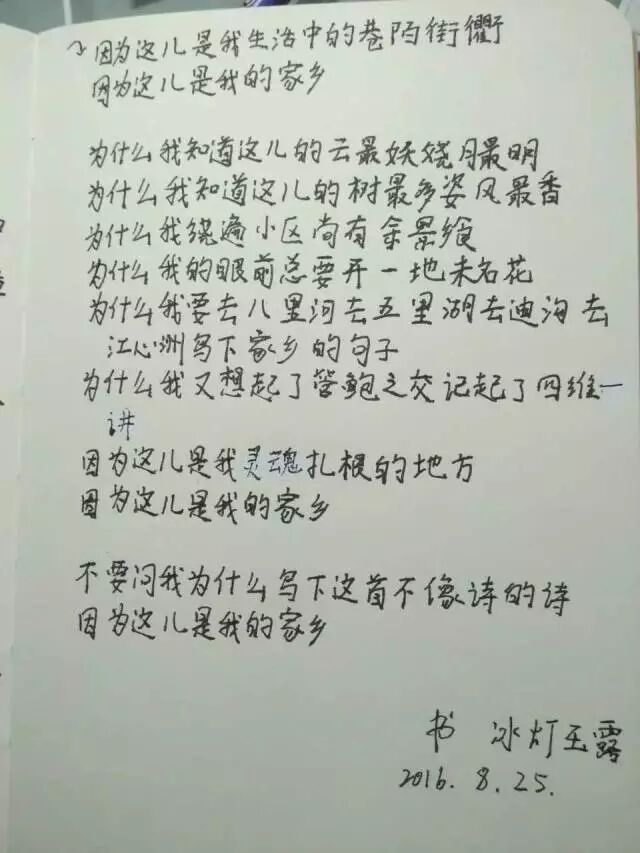 因为这儿是我生活中的巷陌街衢
因为这儿是我的家乡
为什么我知道这儿的云最妖娆月最明
为什么我知道这儿的树最多姿风最香
为什么我绕遍小区尚有余景飨
为什么我的眼前总要开一地未名花
为什么我要去八里河去五里湖去迪沟去
江心洲写下家乡的句子
为什么我又想起了管鲍之交记起了四维一
讲
因为这儿是我灵魂扎根的地方
因为这儿是我的家乡
不要问我为什么写下这首不像诗的诗
因为这儿是我的家乡
书 冰灯玉露
2016.8.25.